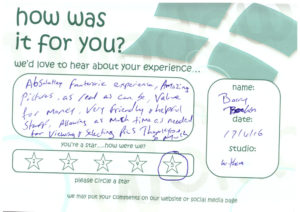 how was
it for you?
we'd love to hear about your experience...
Absolutley Fantastic experience, Amazing
Pictures, as real as can be, Value
for Money, Very friendly & helpful
Staff, Allowing as much time as needed
for Viewing & Selecting Pics Thankyou
So Much
You're a star....how were we?
please circle a star
name:
Barry
date:
17/1/16
studio:
Witham
we may put your comments on our website or social media page